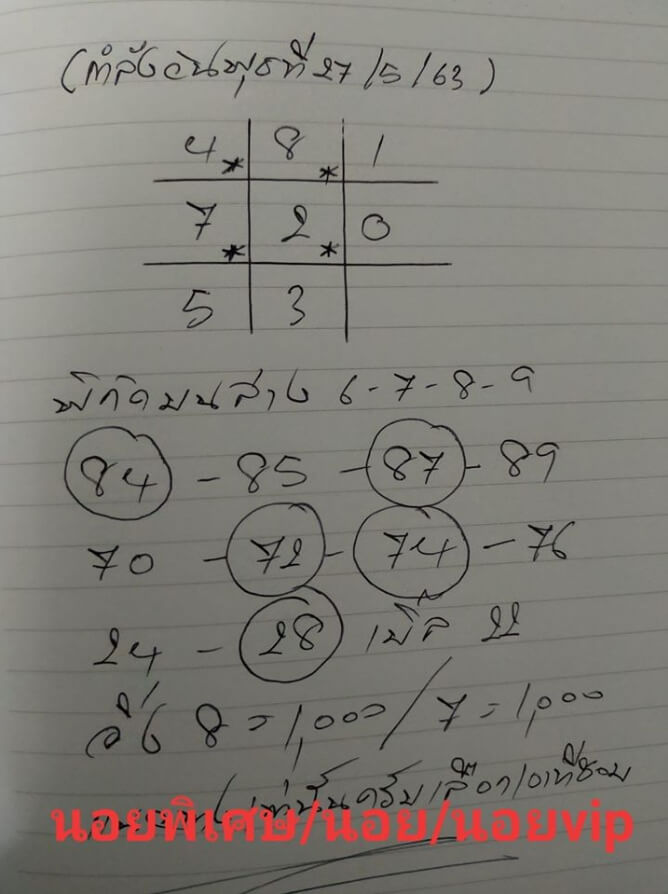 (กำลังวันพุธที่ 27/5/63)
4* 8* 1
7* 2* 0
5 3
พิกัดบนล่าง 6-7-8-9
84 - 85 - 87 - 89
70 - 72 - 74 - 76
24 - 28 เบิ้ล 22
วิ่ง 8 = 1,000 / 7 = 1,000
เท่านั้นครับเลือกเอาที่ชอบ
นอยพิเศษ/นอย/นอยvip